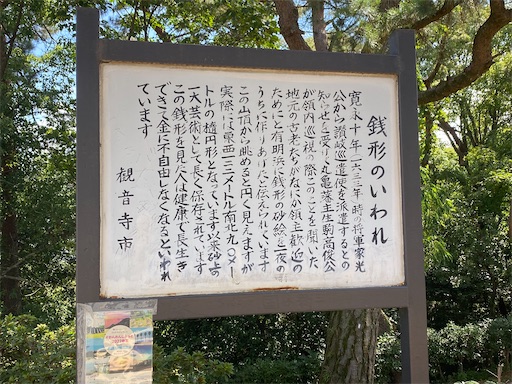 銭形のいわれ
寛永十年（一六三三）時の将軍家光
公から讃岐巡遣使を派遣するとの
知らせを受けた丸亀藩主生駒高俊公
が領内巡視の際このことを聞いた
地元の古老たちがながら領主歓迎の
ためにと有明浜に銭形の砂絵を一夜の
うちに作りあげたと伝えられています
この山頂から眺めると円く見えますが
実際には東西一二二メートル南北九〇メー
トルの楕円形となっています以来砂上の
一大芸術として長く保存されています
この銭形を見た人は健康で長生き
できて金に不自由しなくなるといわれ
ています
観音寺市